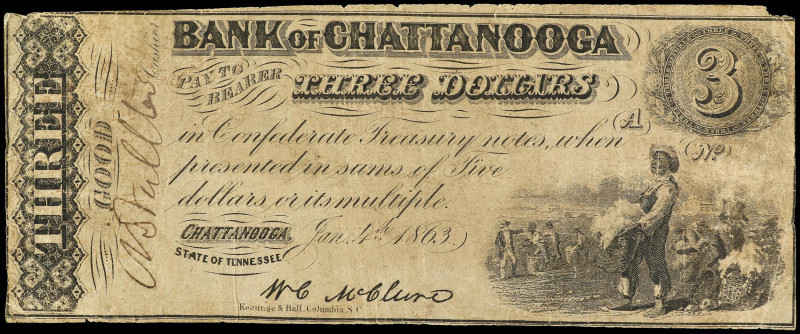 BANK OF CHATTANOOGA
PAY TO BEARER
THREE DOLLARS
3
A
No
in Confederate Treasury notes, when
presented in sums of Five
dollars, or its multiple.
CHATTANOOGA, Jan. 4th 1863.
STATE OF TENNESSEE
W C McClure
Keatinge & Ball, Columbia, S.C.
THREE
GOOD
Cashier